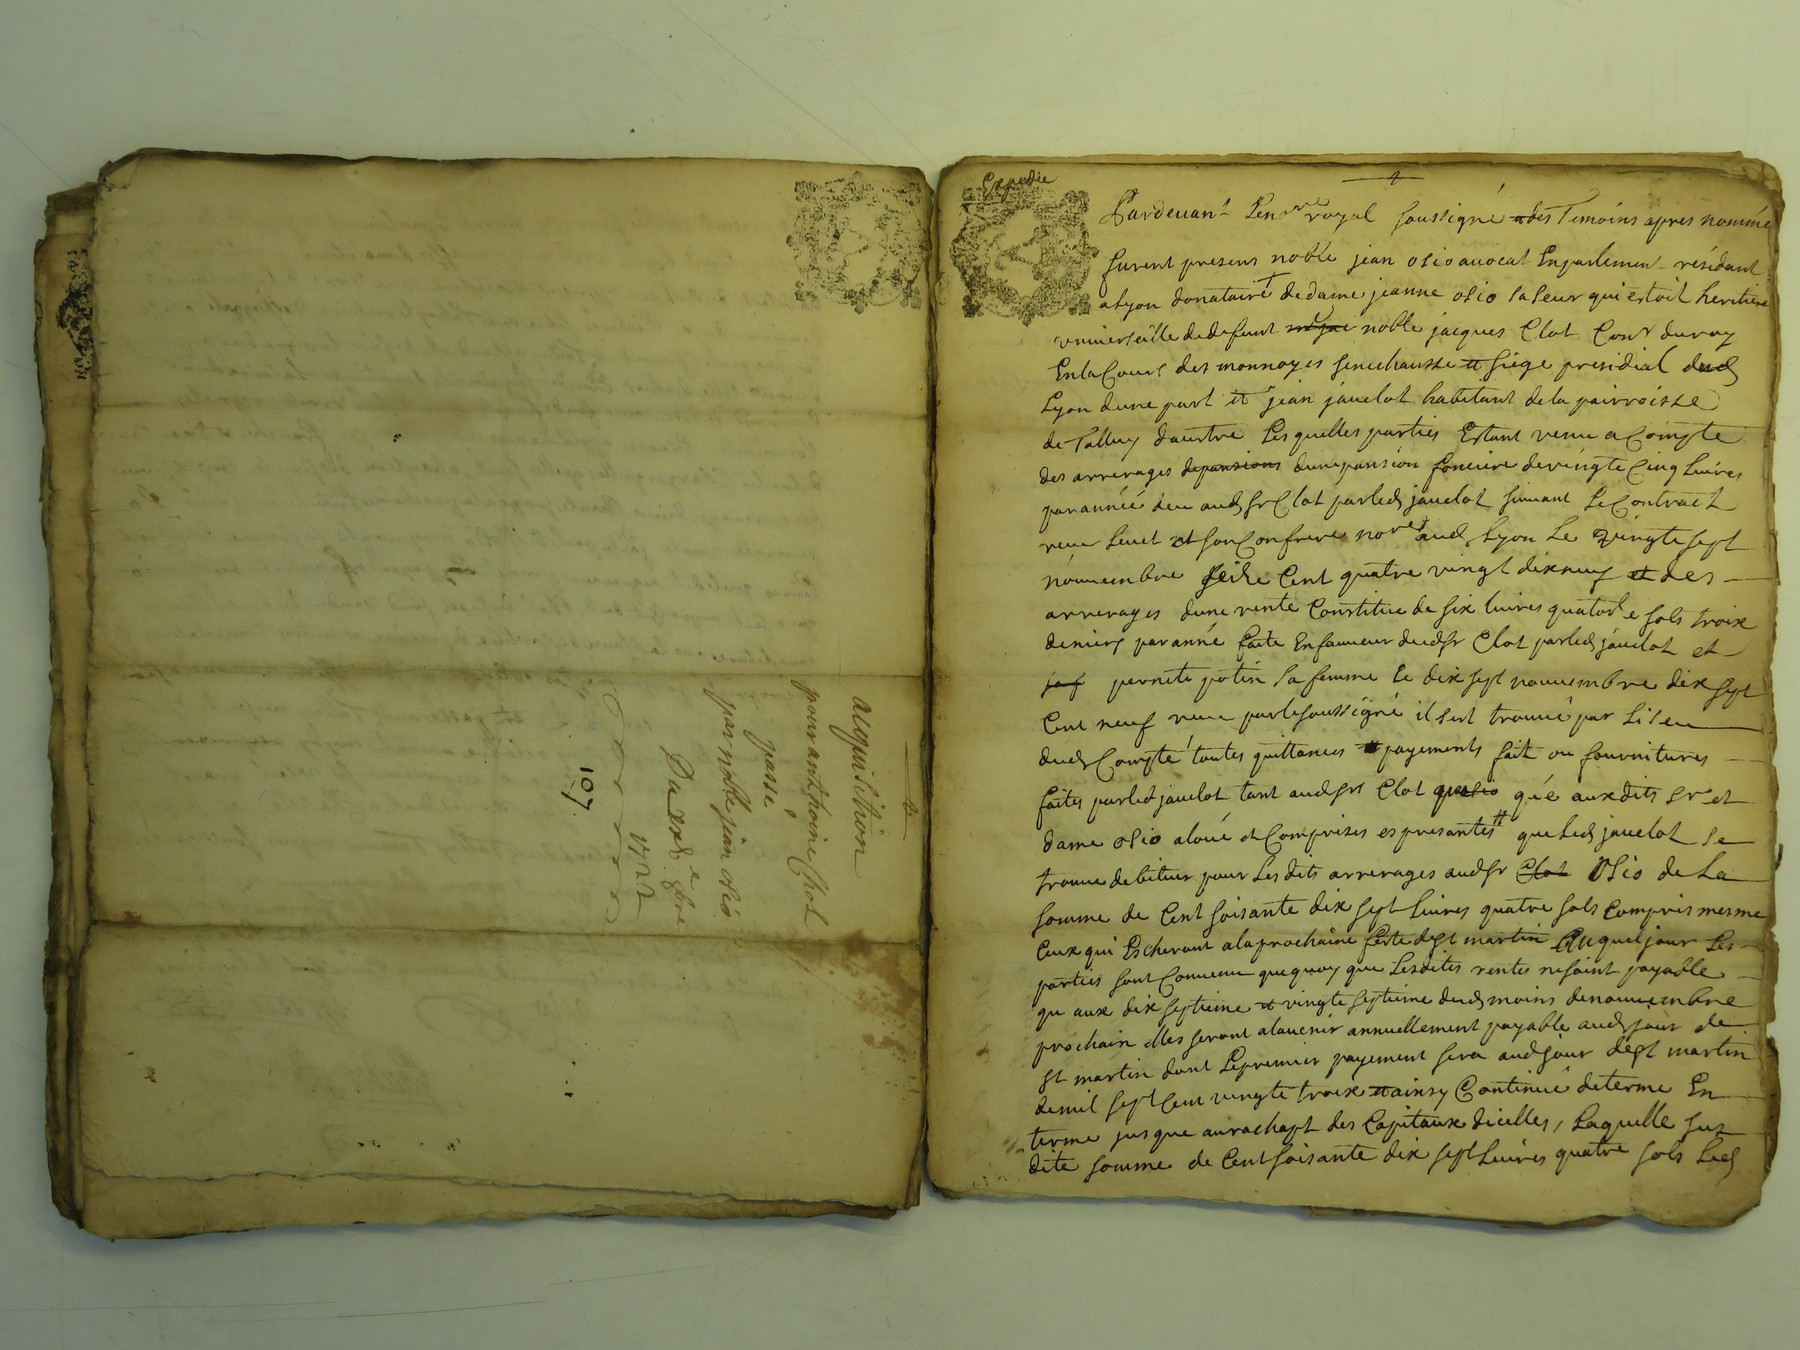 acquisition
pour anthoine Chol
passé
par noble jean osio
Du xxe 8bre
1722
107
Expedie
Pardevant Le nore royal soussigné et des Temoins apres nommé
furent presens noble jean osio avocat En parlement résidant
a Lyon donataire de dame jeanne osio sa seur qui estoit heritiere
universelle de defunt noble jacques Clot Conr du roy
En la Cours des monnoyes senechaussé et siége presidial dud
Lyon dune part et jean javelot habitant de la pairroisse
de Talluy dautre Lesquelles parties Estant venu a Compte
des arrerages de pansions dune pansion fonciere de vingte Cinq Livres
par année deu aud sr Clot par led javelot suivant Le Contract
receu et son Confrere nores aud Lyon Le vingte sept
novembre seize Cent quatre vingt dix neuf et des
arrerages dune rente Constitué de six livres quatorze sols troix
deniers par anné faite En faveur dud sr Clot par led javelot et
pernete potin sa femme le dix sept nouvembre dix sept
Cent neuf receu par le soussigné il sest trouvé par liseu
dud Compte toutes quittances et payements fait ou fournitures
faites par led javelot tant aud sr Clot qué auxdits sr et
dame osio aloué et Comprises es presantes que Led javelot se
trouve debiteur pour Lesdits arrerages aud sr Clot Osio de La
somme de Cent soisante dix sept Livres quatre sols Compris mesme
Ceux qui Escheront a la prochaine feste de st martin Auquel jour Les
parties sont Convenu que quoy que Lesdites rentes ne soint payable
qu aux dix septieme et vingte septieme dud moins de nouvembre
prochain elles seront alavenir annuellement payable aud jour de
st martin dont Le premier payement sera aud jour de st martin
de mil sept Cent vingte troix et ainsy Continué de terme En
terme jusque au rachapt des Capitaux dicelles, Laquelle sus
dite somme de Cent soisante dix sept Livres quatre sols Led